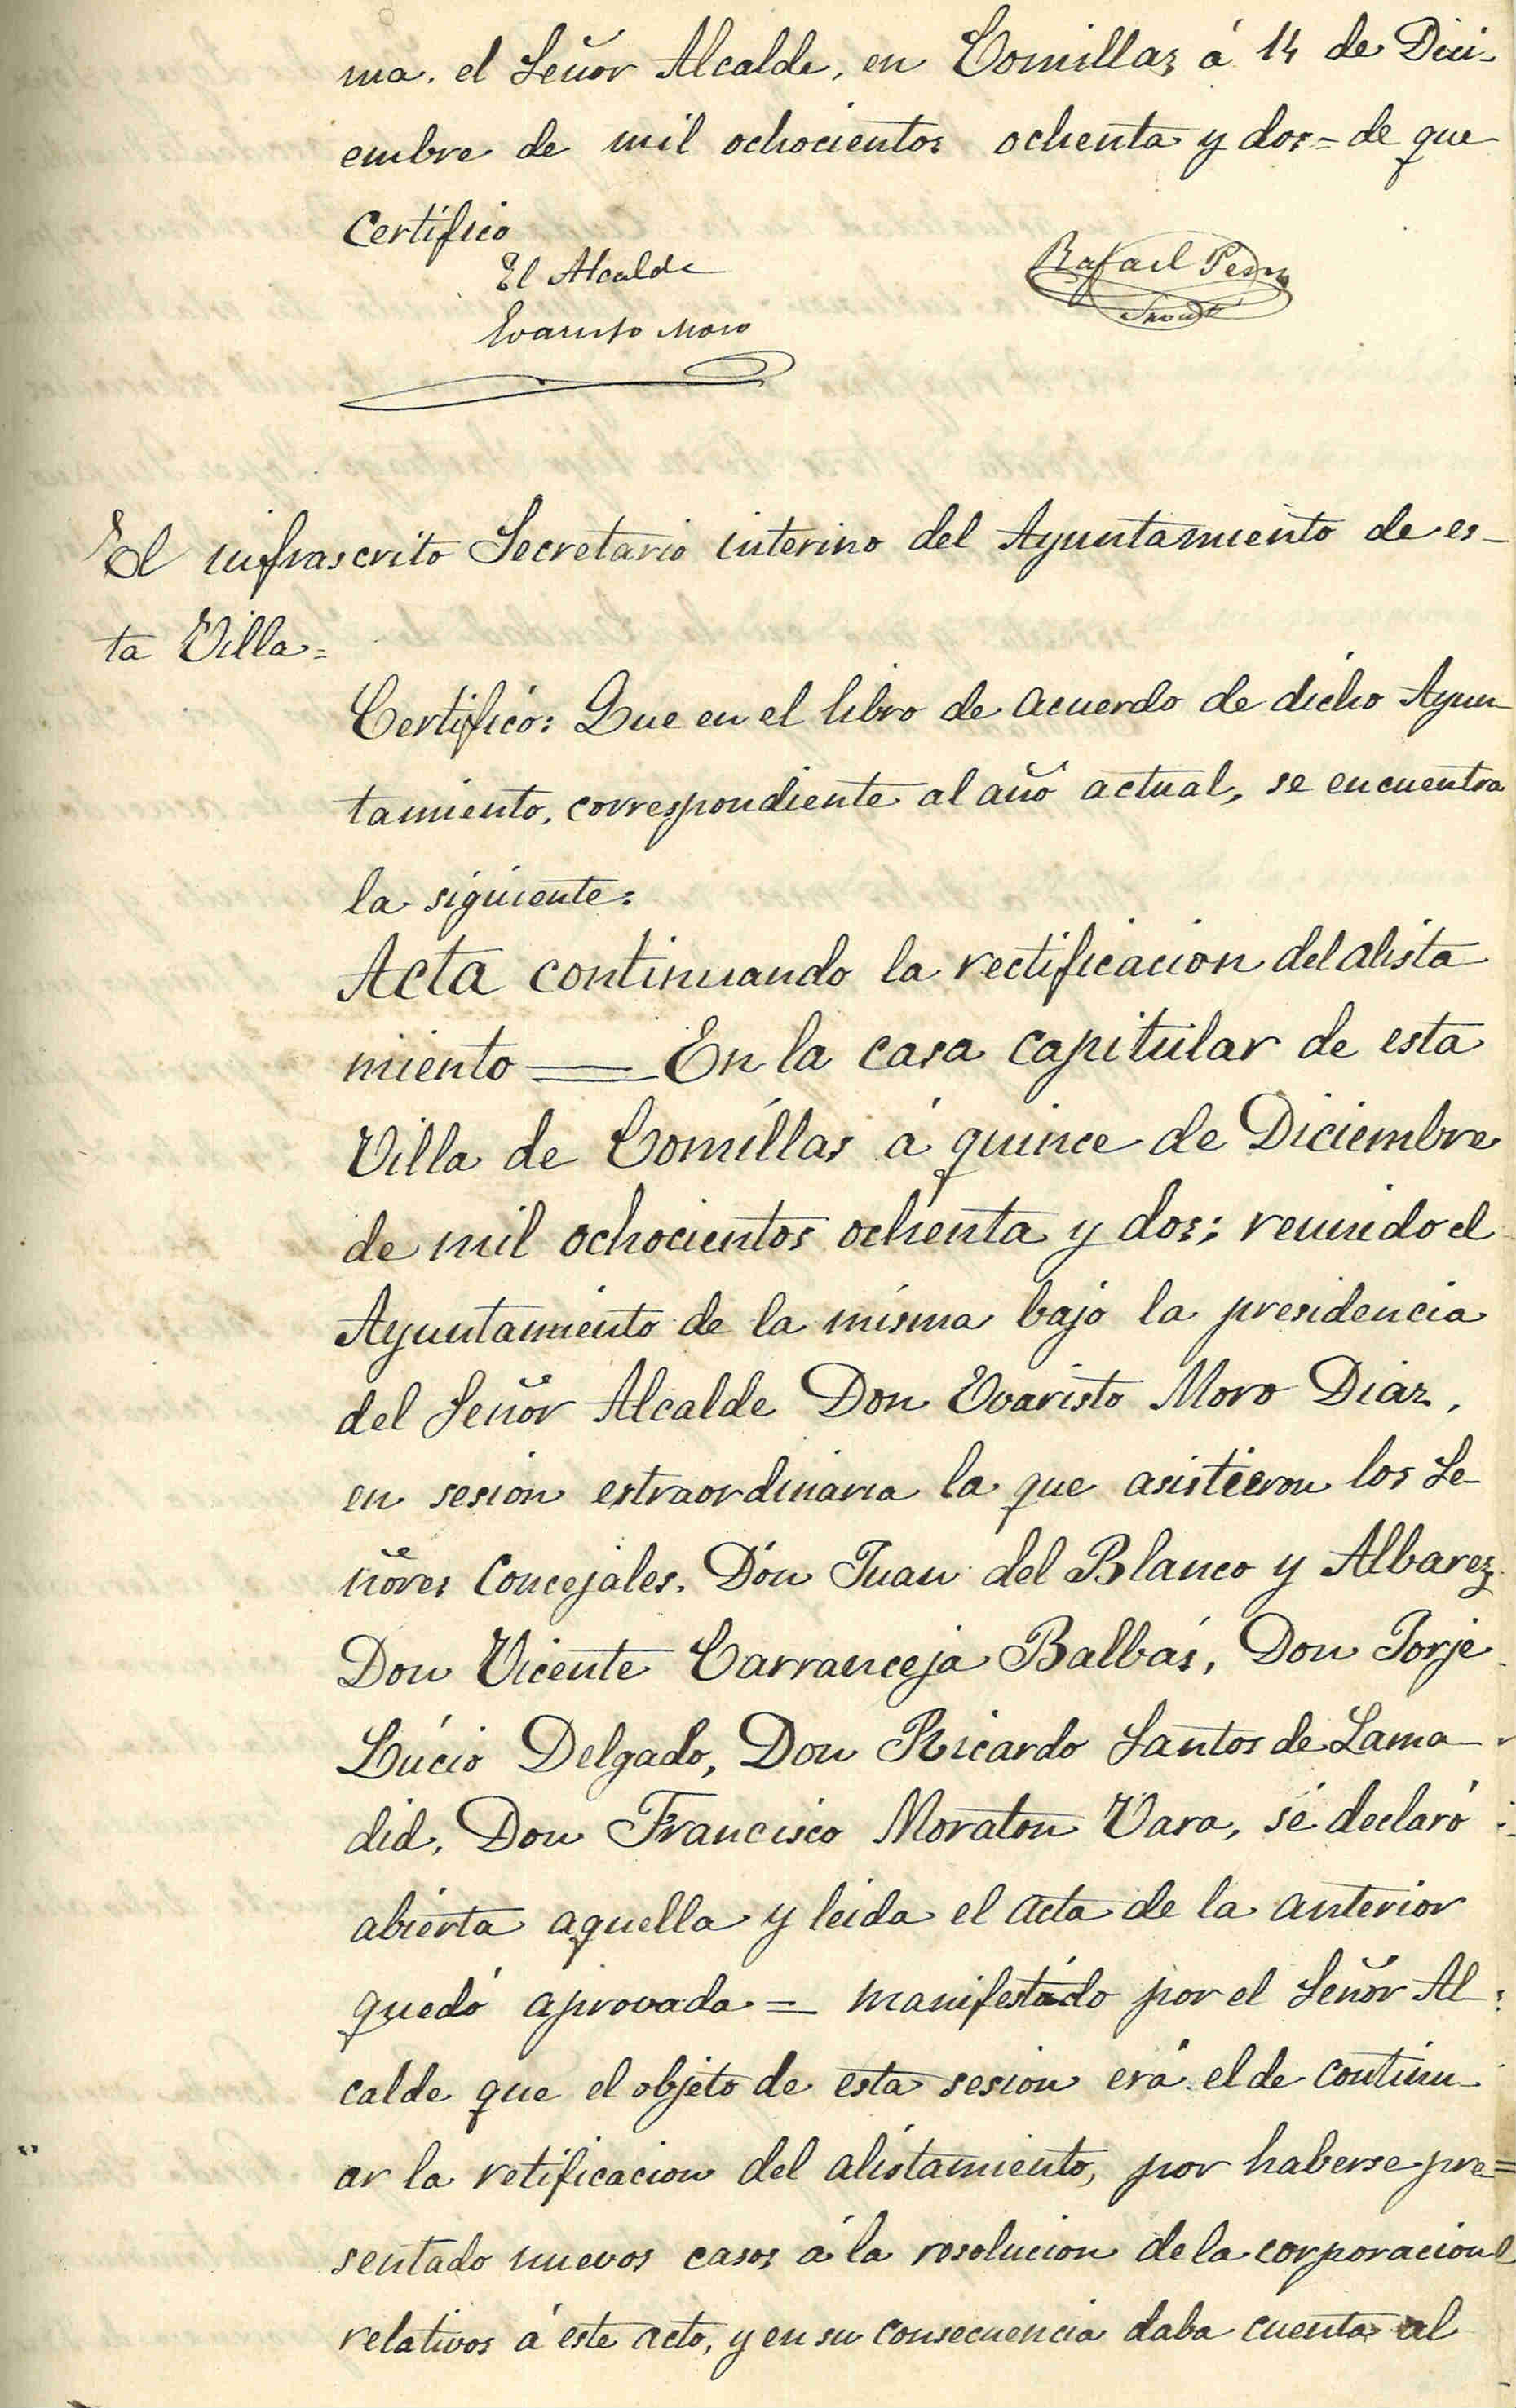 ma. el Señor Alcalde, en Comillas á 14 de Dici-
embre de mil ochocientos ochenta y dos = de que
Certífico
El Alcalde
Rafael
Evaristo Moro
El infrascrito Secretario interino del Ayuntamiento de es-
ta Villa =
Certifico: Que en el libro de acuerdo de dicho Ayun
tamiento, correspondiente al año actual, se encuentra
la siguiente:
Acta continuando la rectificacion del alista
miento = En la casa capitular de esta
Villa de Comillas á quince de Diciembre
de mil ochocientos ochenta y dos; reunido el
Ayuntamiento de la misma bajo la presidencia
del Señor Alcalde Don Evaristo Moro Diaz,
en sesion estraordinaria la que asistieron los Se-
ñores Concejales. Don Juan del Blanco y Albarez
Don Vicente Carranceja Balbás, Don Jorje
Lúcio Delgado, Don Ricardo Santos de Lama-
did, Don Francisco Moraton Vara, sé declaró
abierta aquella y leida el acta de la anterior
quedó aprovada = manifestádo por el Señor Al
calde que el objeto de esta sesion erá el de continu-
ar la retificacion del alistamiento, por haberse pre=
sentado nuevos casos á la resolucion de la corporacion
relativos á este acto, y en su consecuencia daba cuenta al